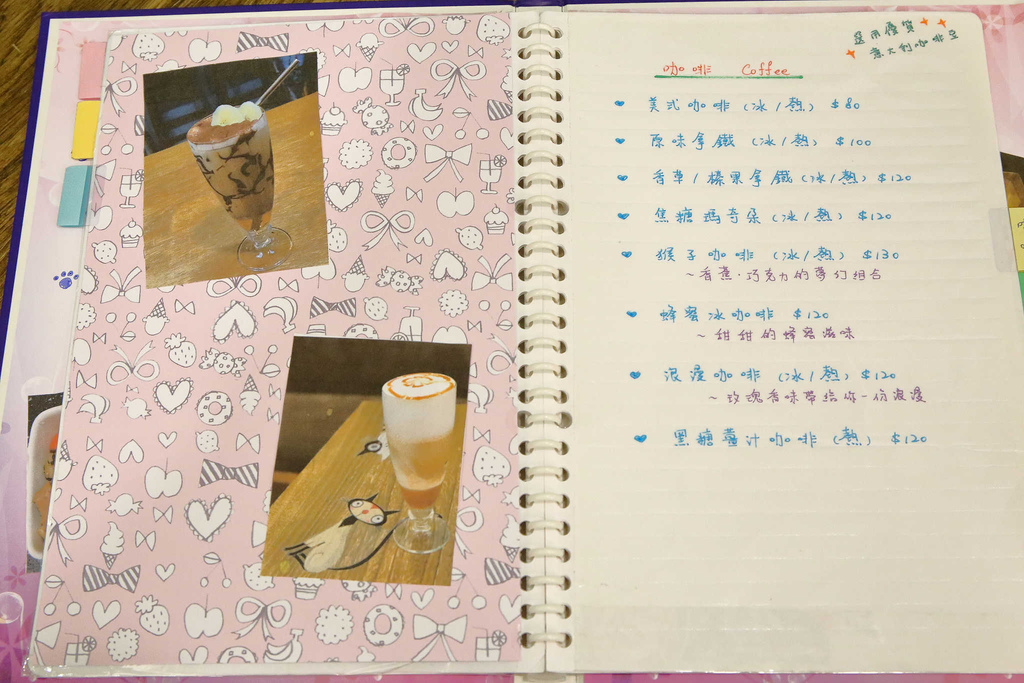 選用優質
意大利咖啡豆
咖啡 Coffee
美式咖啡 (冰/熱) $80
原味拿鐵 (冰/熱) $100
香草/榛果拿鐵 (冰/熱) $120
焦糖瑪奇朵 (冰/熱) $120
猴子咖啡 (冰/熱) $130
~香蕉·巧克力的夢幻組合
蜂蜜冰咖啡 $120
~甜甜的蜂蜜滋味
浪漫咖啡 (冰/熱) $120
~玫瑰香味帶給你一份浪漫
黑糖薑汁咖啡 (熱) $120